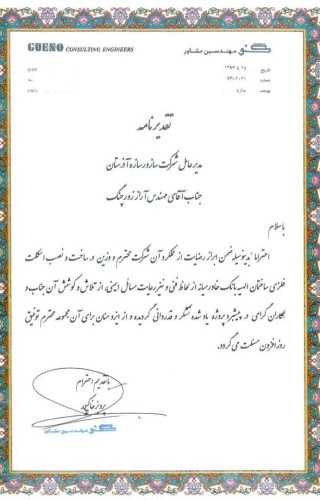 GUENO CONSULTING ENGINEERS
گنو مهندسین مشاور
تاریخ ۱۳۹۳/۴/۲۵
شماره ۹۳-۲۰۲۱
پیوست ندارد
تقدیرنامه
مدیرعامل شرکت سازورسازه آذرستان
جناب آقای مهندس آراز زورچنگ
باسلام
احتراما" بدینوسیله ضمن ابراز رضایت از عملکرد آن شرکت محترم و وزین در ساخت و نصب اسکلت
فلزی ساختمان الهیه بانک خاورمیانه از لحاظ فنی و نیز رعایت مسائل ایمنی، از تلاش و کوشش آن جناب و
همکاران گرامی در پیشبرد پروژه یاد شده تشکر و قدردانی گردیده و از ایزد منان برای آن مجموعه محترم توفیق
روزافزون مسئلت می گردد.
باتقدیم احترام
گنو مهندسین مشاور